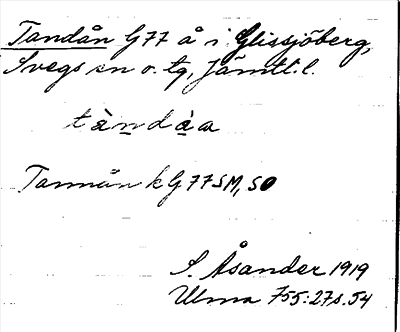 Tandån G77 å i Glissjöberg,
Svegs sn o. tg, Jämtl. l.
tàndȧa
Tannån k G77SM, SO
S. Åsander 1919
Ulma 755:27 s. 54